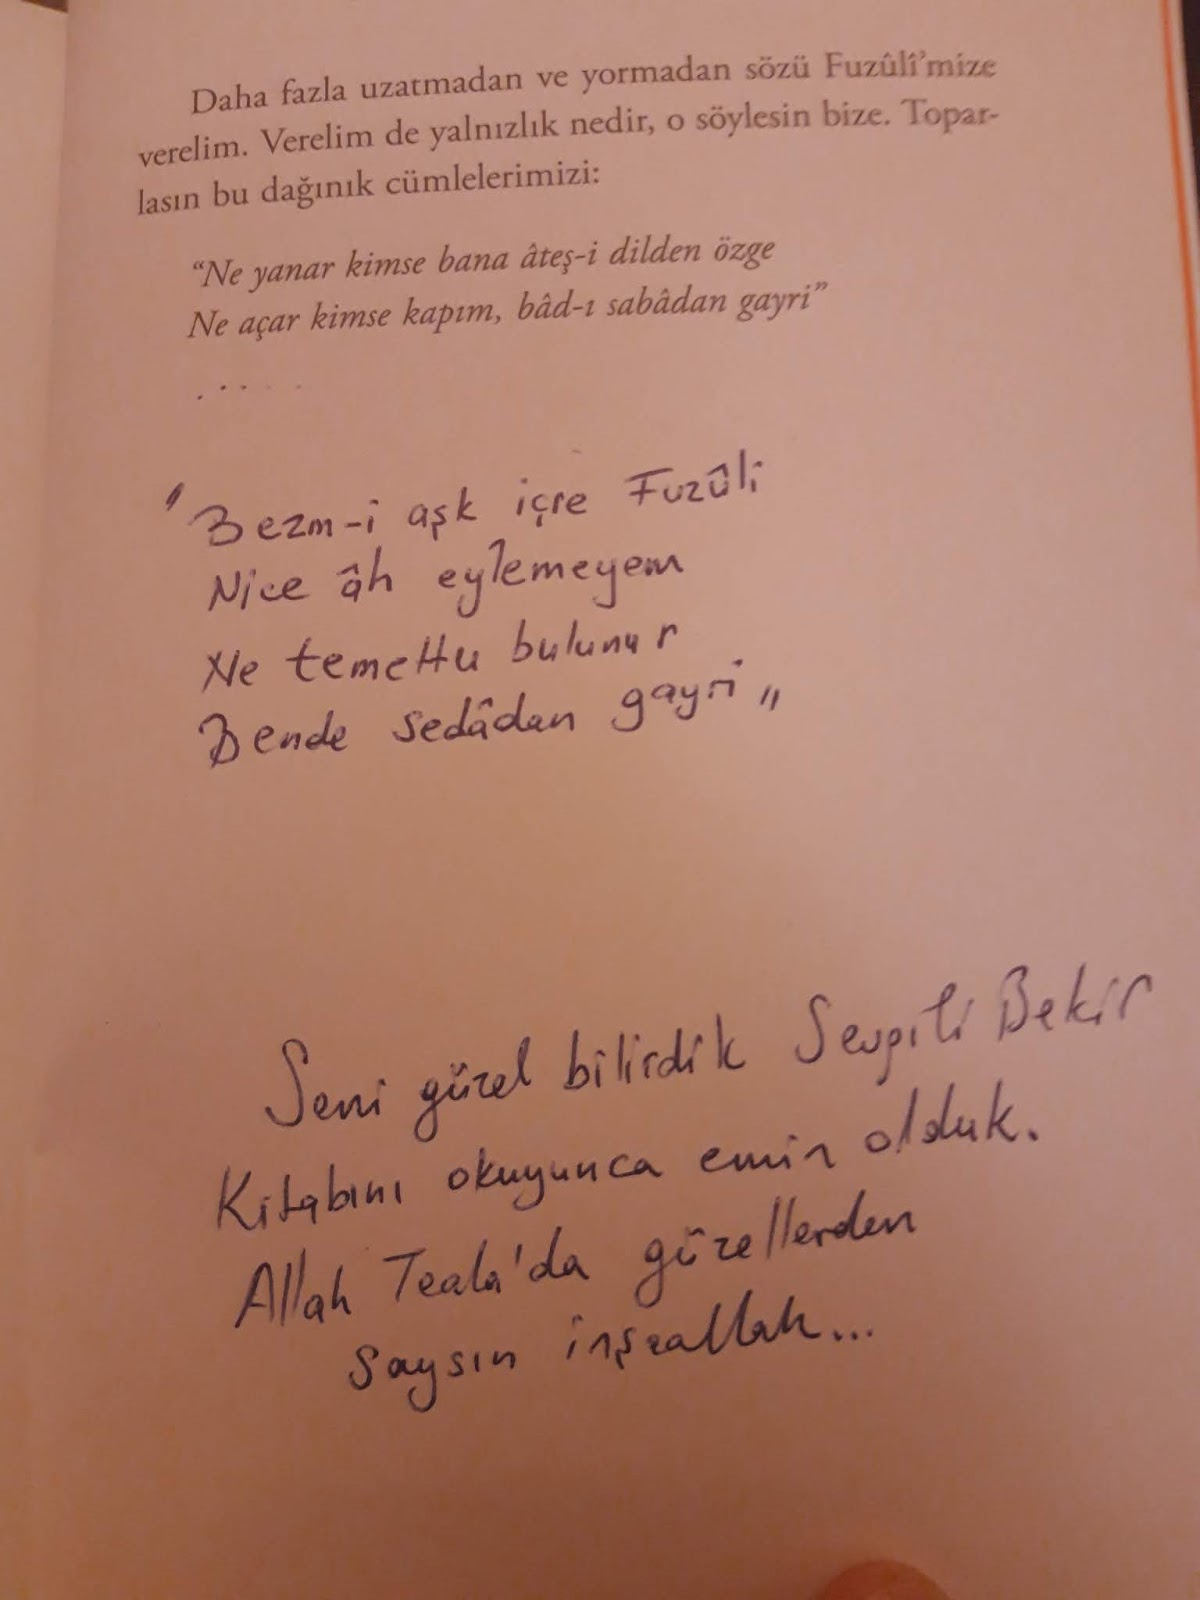 Daha fazla uzatmadan ve yormadan sözü Fuzûlî’mize
verelim. Verelim de yalnızlık nedir, o söylesin bize. Topar-
lasın bu dağınık cümlelerimizi:
“Ne yanar kimse bana âteş-i dilden özge
Ne açar kimse kapım, bâd-ı sabâdan gayri”
.....
"Bezm-i aşk içre Fuzûli
Nice âh eylemeyem
Ne temettu bulunur
Bende sedâdan gayri"
Seni güzel bilirdik Sevgili Bekir
Kitabını okuyunca emin olduk.
Allah Teala'da güzellerden
saysın inşeallah...